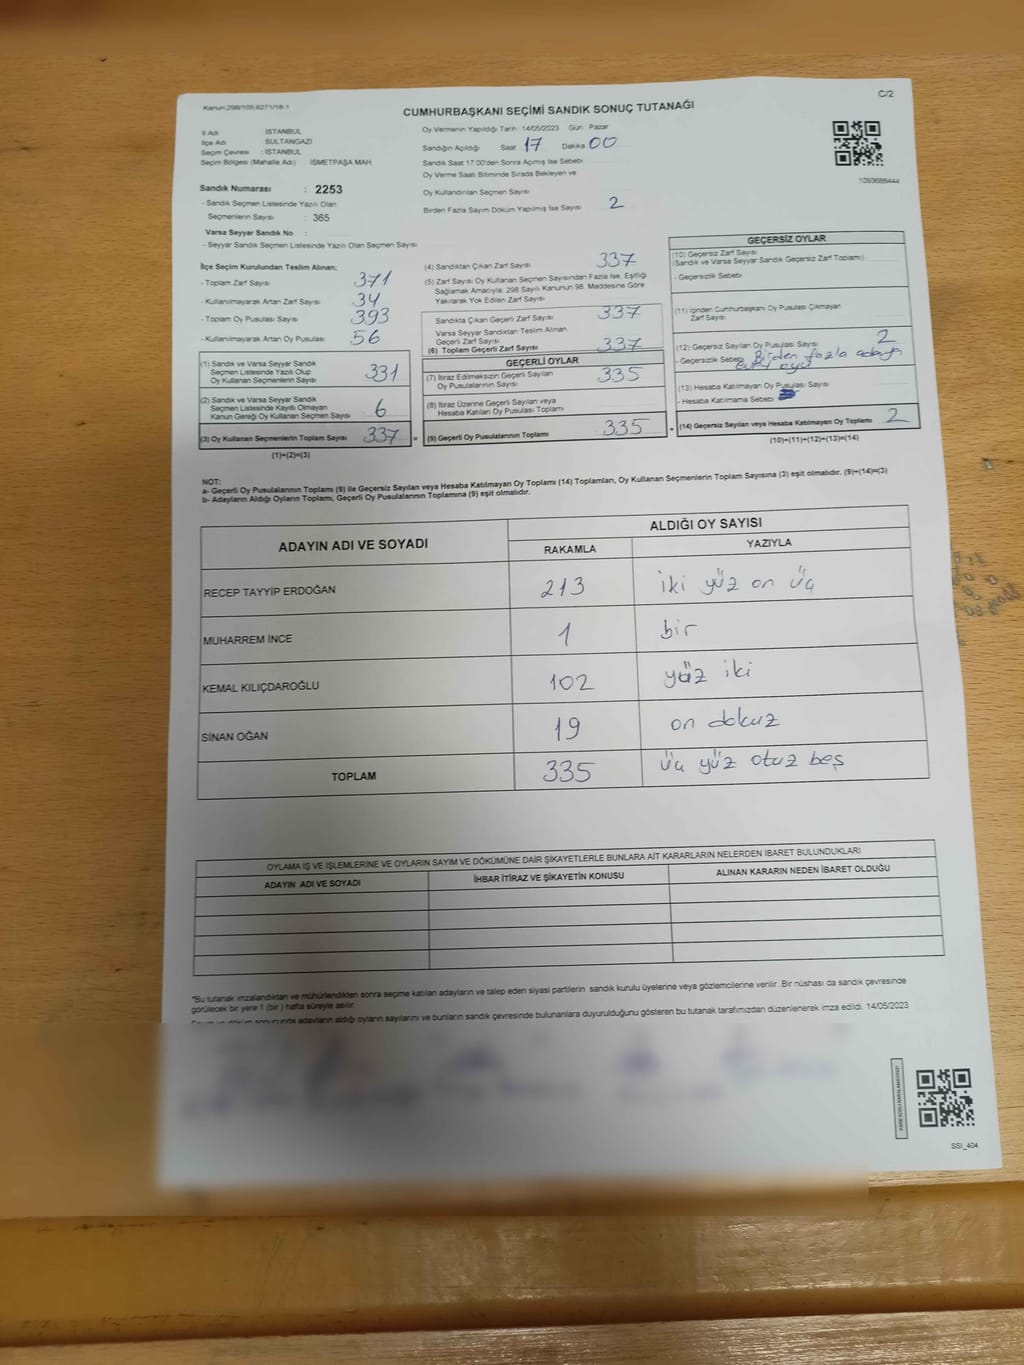 Kanun:298/105;6271/18-1
C/2
CUMHURBAŞKANI SEÇİMİ SANDIK SONUÇ TUTANAĞI
İl Adı İSTANBUL
İlçe Adı SULTANGAZİ
Seçim Çevresi : İSTANBUL
Seçim Bölgesi (Mahalle Adı) İSMETPAŞA MAH.
Sandık Numarası : 2253
- Sandık Seçmen Listesinde Yazılı Olan
Seçmenlerin Sayısı : 365
Varsa Seyyar Sandık No :
- Seyyar Sandık Seçmen Listesinde Yazılı Olan Seçmen Sayısı
Oy Vermenin Yapıldığı Tarih :14/05/2023 Gün : Pazar
Sandığın Açıldığı Saat 17 Dakika 00
Sandık Saat 17:00'den Sonra Açılmış İse Sebebi
Oy Verme Saati Bitiminde Sırada Bekleyen ve
Oy Kullandırılan Seçmen Sayısı
Birden Fazla Sayım Döküm Yapılmış İse Sayısı 2
1093688444
İlçe Seçim Kurulundan Teslim Alınan;
- Toplam Zarf Sayısı 371
- Kullanılmayarak Artan Zarf Sayısı 34
- Toplam Oy Pusulası Sayısı 393
- Kullanılmayarak Artan Oy Pusulası 56
(1) Sandık ve Varsa Seyyar Sandık
Seçmen Listesinde Yazılı Olup
Oy Kullanan Seçmenlerin Sayısı 331
(2) Sandık ve Varsa Seyyar Sandık
Seçmen Listesinde Kayıtlı Olmayan
Kanun Gereği Oy Kullanan Seçmen Sayısı 6
(3) Oy Kullanan Seçmenlerin Toplam Sayısı 337 =
(1)+(2)=(3)
(4) Sandıktan Çıkan Zarf Sayısı 337
(5) Zarf Sayısı Oy Kullanan Seçmen Sayısından Fazla İse, Eşitliği
Sağlamak Amacıyla 298 Sayılı Kanunun 98. Maddesine Göre
Yakılarak Yok Edilen Zarf Sayısı
Sandıkta Çıkan Geçerli Zarf Sayısı 337
Varsa Seyyar Sandıktan Teslim Alınan
Geçerli Zarf Sayısı
(6) Toplam Geçerli Zarf Sayısı 337
GEÇERLİ OYLAR
(7) İtiraz Edilmeksizin Geçerli Sayılan
Oy Pusulalarının Sayısı 335
(8) İtiraz Üzerine Geçerli Sayılan veya
Hesaba Katılan Oy Pusulası Toplamı
(9) Geçerli Oy Pusulalarının Toplamı 335 +
GEÇERSİZ OYLAR
(10) Geçersiz Zarf Sayısı
(Sandık ve Varsa Seyyar Sandık Geçersiz Zarf Toplamı)
- Geçersizlik Sebebi
(11) İçinden Cumhurbaşkanı Oy Pusulası Çıkmayan
Zarf Sayısı
(12) Geçersiz Sayılan Oy Pusulası Sayısı 2
- Geçersizlik Sebebi Birden fazla adaya
oyu
(13) Hesaba Katılmayan Oy Pusulası Sayısı
- Hesaba Katılmama Sebebi
(14) Geçersiz Sayılan veya Hesaba Katılmayan Oy Toplamı 2
(10)+(11)+(12)+(13)=(14)
NOT:
a- Geçerli Oy Pusulalarının Toplamı (9) ile Geçersiz Sayılan veya Hesaba Katılmayan Oy Toplamı (14) Toplamları, Oy Kullanan Seçmenlerin Toplam Sayısına (3) eşit olmalıdır. (9)+(14)=(3)
b- Adayların Aldığı Oyların Toplamı, Geçerli Oy Pusulalarının Toplamına (9) eşit olmalıdır.
ADAYIN ADI VE SOYADI ALDIĞI OY SAYISI
RAKAMLA YAZIYLA
RECEP TAYYİP ERDOĞAN 213 iki yüz on üç
MUHARREM İNCE 1 bir
KEMAL KILIÇDAROĞLU 102 yüz iki
SİNAN OĞAN 19 on dokuz
TOPLAM 335 üç yüz otuz beş
OYLAMA İŞ VE İŞLEMLERİNE VE OYLARIN SAYIM VE DÖKÜMÜNE DAİR ŞİKAYETLERLE BUNLARA AİT KARARLARIN NELERDEN İBARET BULUNDUKLARI
ADAYIN ADI VE SOYADI İHBAR İTİRAZ VE ŞİKAYETİN KONUSU ALINAN KARARIN NEDEN İBARET OLDUĞU
*Bu tutanak imzalandıktan ve mühürlendikten sonra seçime katılan adayların ve talep eden siyasi partilerin sandık kurulu üyelerine veya gözlemcilerine verilir. Bir nüshası da sandık çevresinde
görülecek bir yere 1 (bir) hafta süreyle asılır.
Sayım ve döküm sonucunda adayların aldığı oyların sayılarını ve bunların sandık çevresinde bulunanlara duyurulduğunu gösteren bu tutanak tarafımızdan düzenlenerek imza edildi. 14/05/2023
SSİ_404